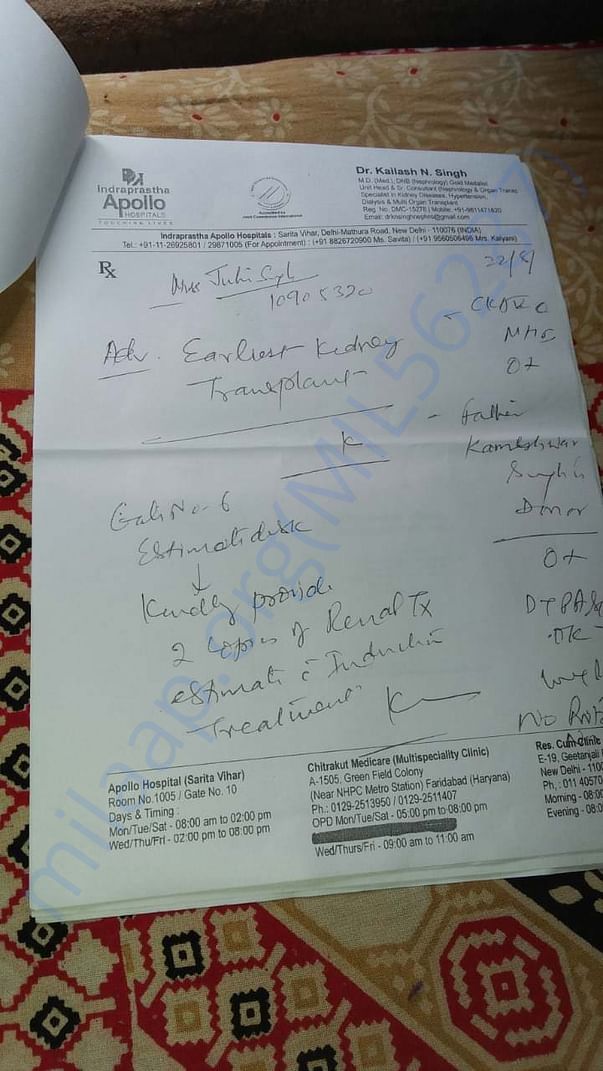 Indraprastha
Apollo
HOSPITALS
TOUCHING LIVES
Dr. Kailash N. Singh
M.D. (Med.), DNB (Nephrology) Gold Medalist
Unit Head & Sr. Consultant (Nephrology & Organ Trans
Specialist in Kidney Diseases, Hypertension,
Dialysis & Multi Organ Transplant
Reg. No. DMC-15276 | Mobile: +91-9811471820
Indraprastha Apollo Hospitals : Sarita Vihar, Delhi-Mathura Road, New Delhi - 110076 (INDIA)
Tel.: +91-11-26925801 / 29871005 (For Appointment) : (+91 8826720900 Ms. Savita) / (+91 9560506496 Mrs. Kalyani)
Rx
22/8/
10905320
MHD
O+
Adv. Earliest Kidney
Transplant
Father
Kameshwar
Singh
Donor
O+
Gate No - 6
Estimate desk
↓
Kindly provide
2 copies of Renal Tx
estimate c Induction
Treatment
DTPA
No
Apollo Hospital (Sarita Vihar)
Room No.1005 / Gate No. 10
Days & Timing :
Mon/Tue/Sat - 08:00 am to 02:00 pm
Wed/Thu/Fri - 02:00 pm to 08:00 pm
Chitrakut Medicare (Multispeciality Clinic)
A-1505, Green Field Colony
(Near NHPC Metro Station) Faridabad (Haryana)
Ph.: 0129-2513950 / 0129-2511407
OPD Mon/Tue/Sat - 05:00 pm to 08:00 pm
Wed/Thurs/Fri - 09:00 am to 11:00 am
Res. Cum Clinic
E-19, Geetanjali
New Delhi - 1100
Ph.: 011 40570
Morning - 08:0
Evening - 08:0
milaap.org(MIL5622